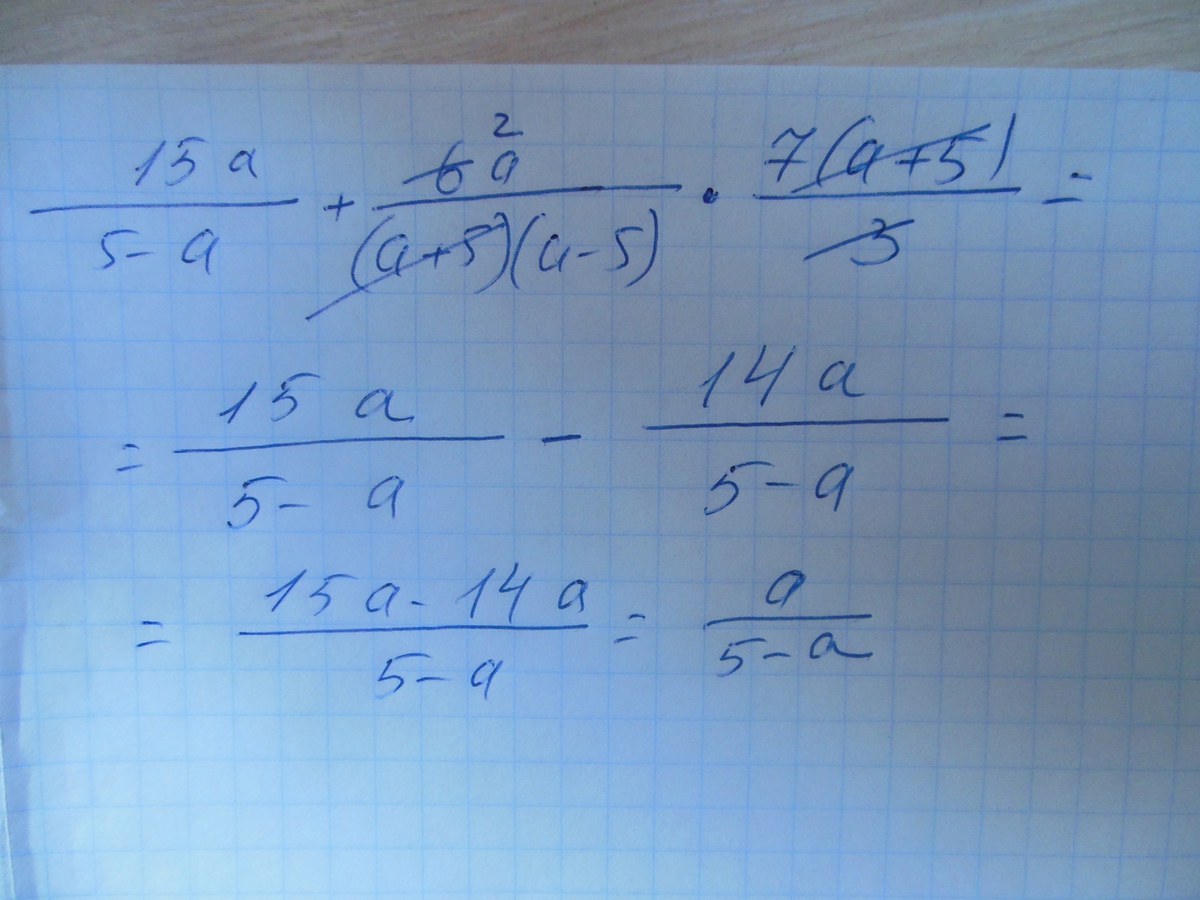 15a/(5-a) + 6a/((a+5)(a-5)) · 7(a+5)/3 =
2
= 15a/(5-a) - 14a/(5-a) =
= (15a-14a)/(5-a) = a/(5-a)